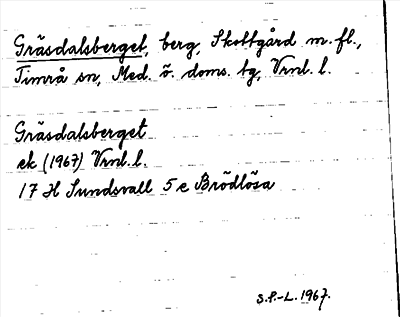 Gräsdalsberget, berg, Skottgård m.fl.,
Timrå sn, Med. ö. doms. tg, Vrnl. l.
Gräsdalsberget
ek (1967) Vrnl. l.
17 H Sundsvall 5 e Brödlösa
S.P.-L. 1967.